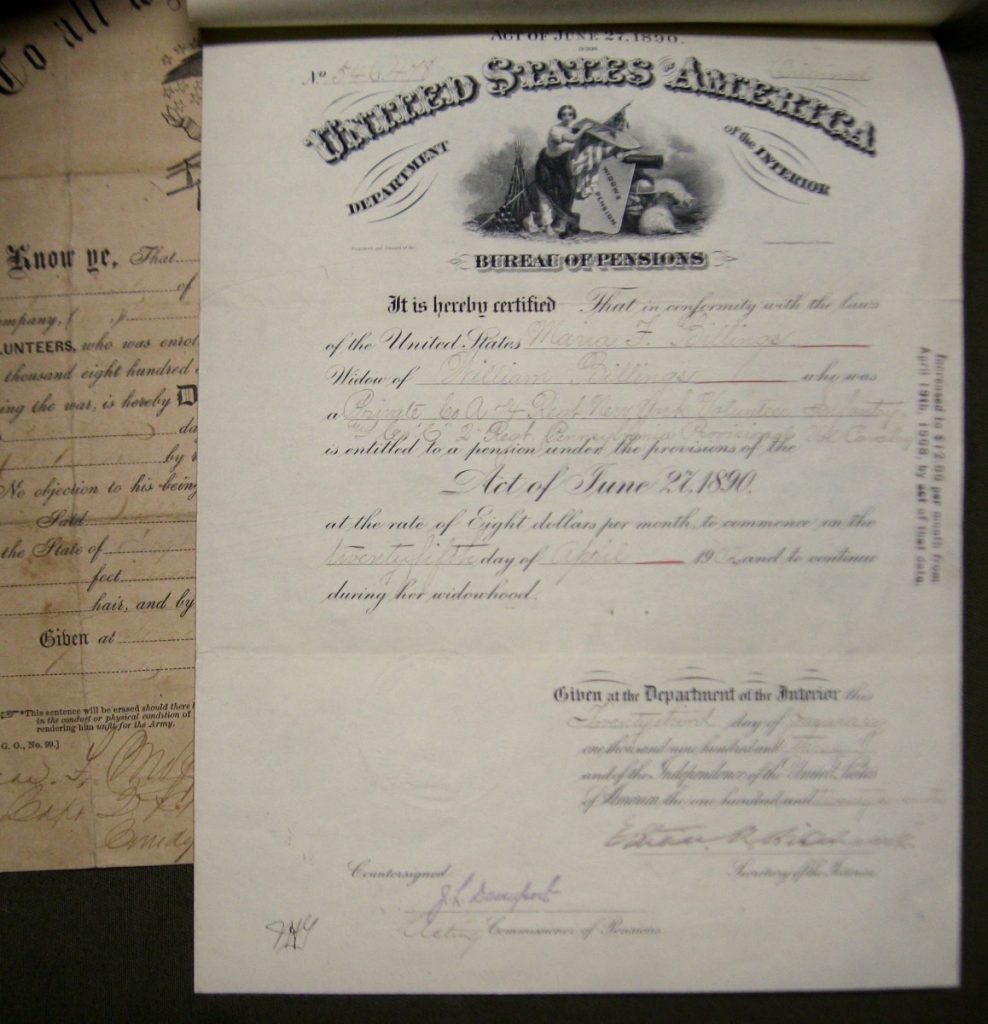 To all
Know ye, That
of
ompany, ( )
LUNTEERS, who was enrol
thousand eight hundred
ing the war, is hereby D
da
by r
No objection to his being
Said
the State of
feet
hair, and by
Given at
*This sentence will be erased should there
in the conduct or physical condition of
rendering him unfit for the Army.
G. O., No. 99.]
Capt
ACT OF JUNE 27, 1890.
No Original
UNITED STATES OF AMERICA
DEPARTMENT of the INTERIOR
WIDOWS PENSION
BUREAU OF PENSIONS
It is hereby certified That in conformity with the laws
of the United States Maria F. Billings
Widow of William Billings who was
a Private, Co A 4 Regt New York Volunteer Infantry
Co E 2 Regt Pennsylvania Provisional Cavalry
is entitled to a pension under the provisions of the
Act of June 27, 1890.
at the rate of Eight dollars per month, to commence on the
twenty fifth day of April 190 and to continue
during her widowhood.
Increased to $12.00 per month from
April 19th, 1908, by act of that date.
Given at the Department of the Interior this
Twenty third day of January
one thousand nine hundred and
and of the Independence of the United States
of America the one hundred and twenty
Secretary of the Interior.
Countersigned
J L Davenport
Acting Commissioner of Pensions.